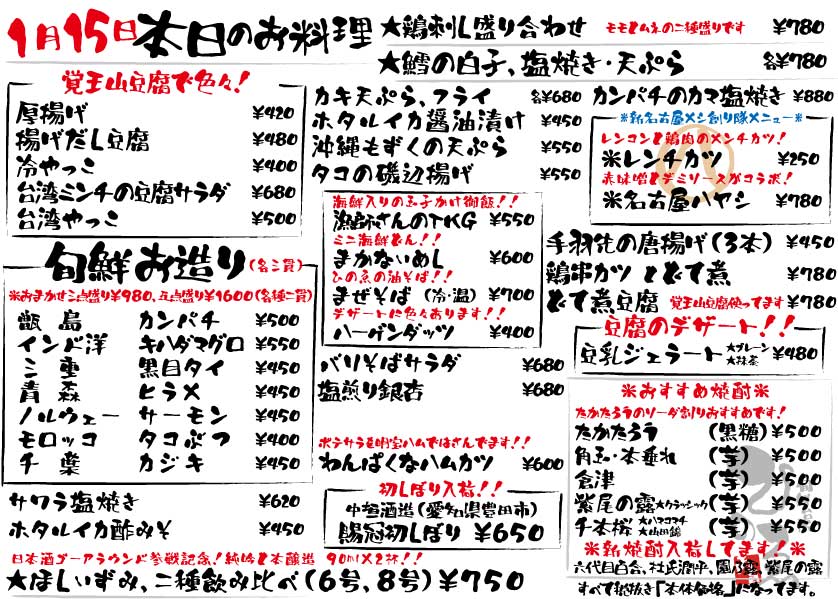 1月15日本日のお料理
★鶏刺し盛り合わせ モモとムネの二種盛りです ¥780
★鱈の白子、塩焼き・天ぷら 各¥780
覚王山豆腐で色々!
厚揚げ ¥420
揚げだし豆腐 ¥480
冷やっこ ¥400
台湾ミンチの豆腐サラダ ¥680
台湾やっこ ¥500
旬鮮お造り(各三貫)
※おまかせ三点盛り¥980、五点盛り¥1600(各種二貫)
甑島 カンパチ ¥500
インド洋 キハダマグロ ¥550
三重 黒目タイ ¥450
青森 ヒラメ ¥450
ノルウェー サーモン ¥450
モロッコ タコぶつ ¥400
千葉 カジキ ¥450
サワラ塩焼き ¥620
ホタルイカ酢みそ ¥450
カキ天ぷら、フライ 各¥680
ホタルイカ醤油漬け ¥450
沖縄もずくの天ぷら ¥550
タコの磯辺揚げ ¥550
海鮮入りの玉子かけ御飯!!
漁師さんのTKG ¥550
ミニ海鮮どん!!
まかないめし ¥600
ひの魚の油そば!!
まぜそば (冷・温) ¥700
デザートに色々あります!!
ハーゲンダッツ ¥400
バリそばサラダ ¥680
塩煎り銀杏 ¥680
ポテサラを明宝ハムではさんでます!!
わんぱくなハムカツ ¥600
初しぼり入荷!!
中垣酒造(愛知県豊田市)
賜冠初しぼり ¥650
日本酒ゴーアラウンド参戦記念!純吟と本醸造 90ml×2杯!!
★ほしいずみ、二種飲み比べ(6号、8号)¥750
カンパチのカマ塩焼き ¥880
※新名古屋メシ創り隊メニュー※
レンコンと鶏肉のメンチカツ!
※レンチカツ ¥250
赤味噌とデミソースがコラボ!
※名古屋ハヤシ ¥780
手羽先の唐揚げ(3本) ¥450
鶏串カツ とどて煮 ¥780
どて煮豆腐 覚王山豆腐使ってます ¥780
豆腐のデザート!!
豆乳ジェラート ★プレーン ★抹茶 ¥480
※おすすめ焼酎※
たかたろうのソーダ割りおすすめです!
たかたろう (黒糖) ¥500
角玉・本垂れ (芋) ¥500
倉津 (芋) ¥500
紫尾の露★クラッシック(芋) ¥550
千本桜 ★ハマコマチ ★山田錦 (芋) ¥550
※新焼酎入荷してます!※
六代目百合、杜氏潤平、園乃露、紫尾の露
すべて税抜き「本体価格」になってます。